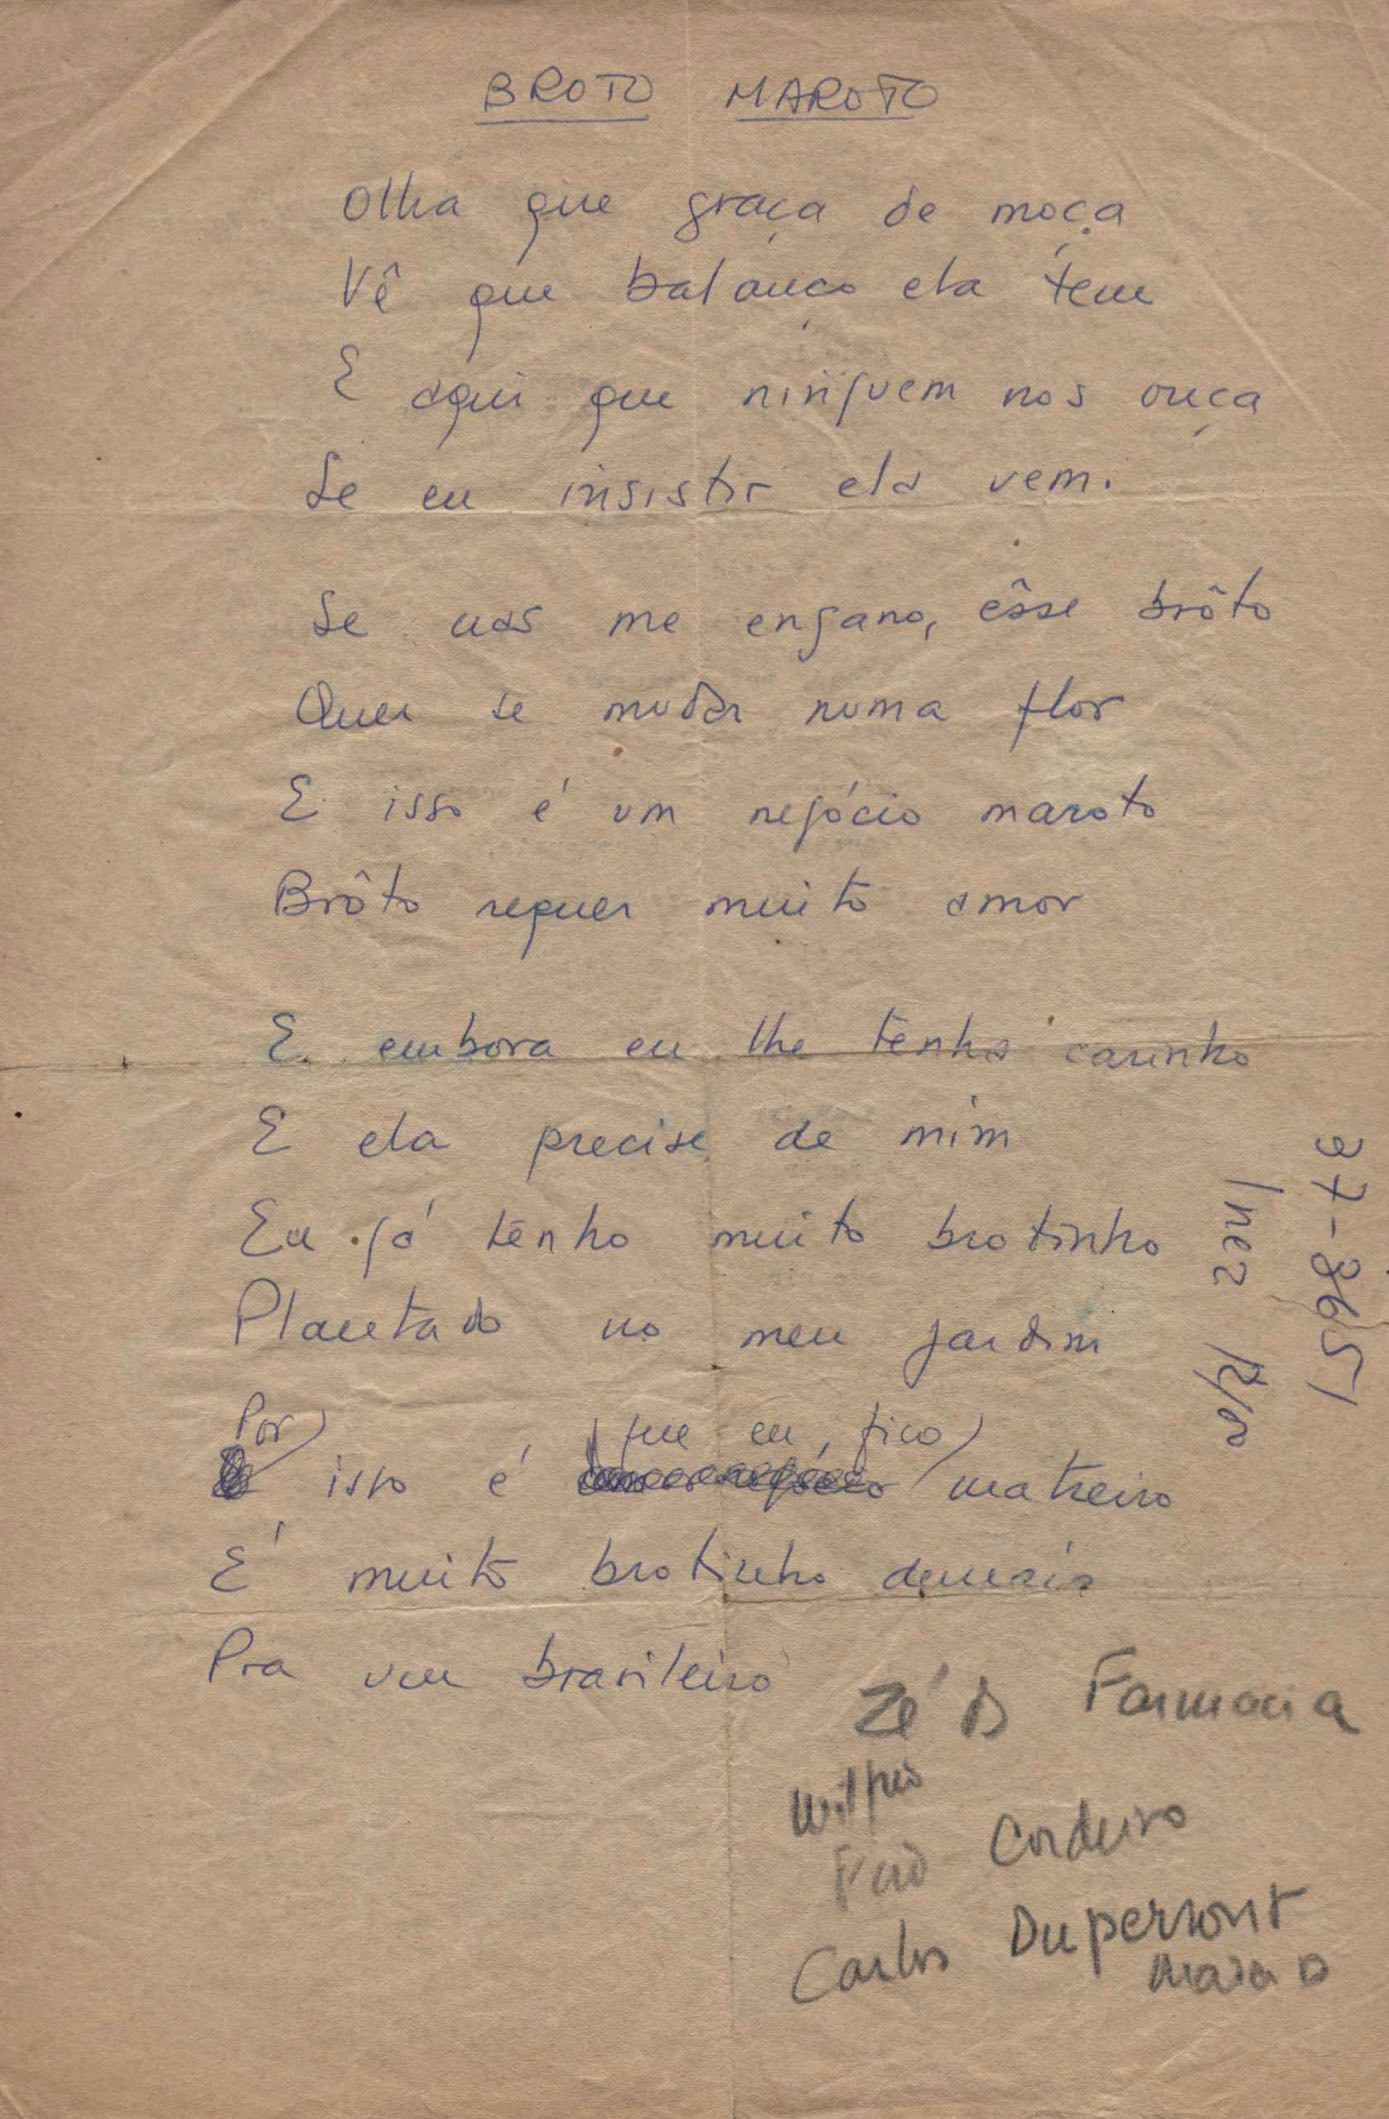 BROTO MAROTO
Olha que graça de moça
Vê que balanço ela tem
E aqui que ninguem nos ouça
Se eu insistir ela vem.
Se não me engano, êsse brôto
Quer se mudar numa flor
E isso é um negócio maroto
Brôto requer muito amor
E embora eu lhe tenha carinho
E ela precise de mim
Eu já tenho muito brotinho
Plantado no meu jardim
Por isso é que eu fico matreiro
É muito brotinho demais
Pra um brasileiro
Zé da Farmacia
Cordeiro
Carlos Dupernont
37-8651
Inez